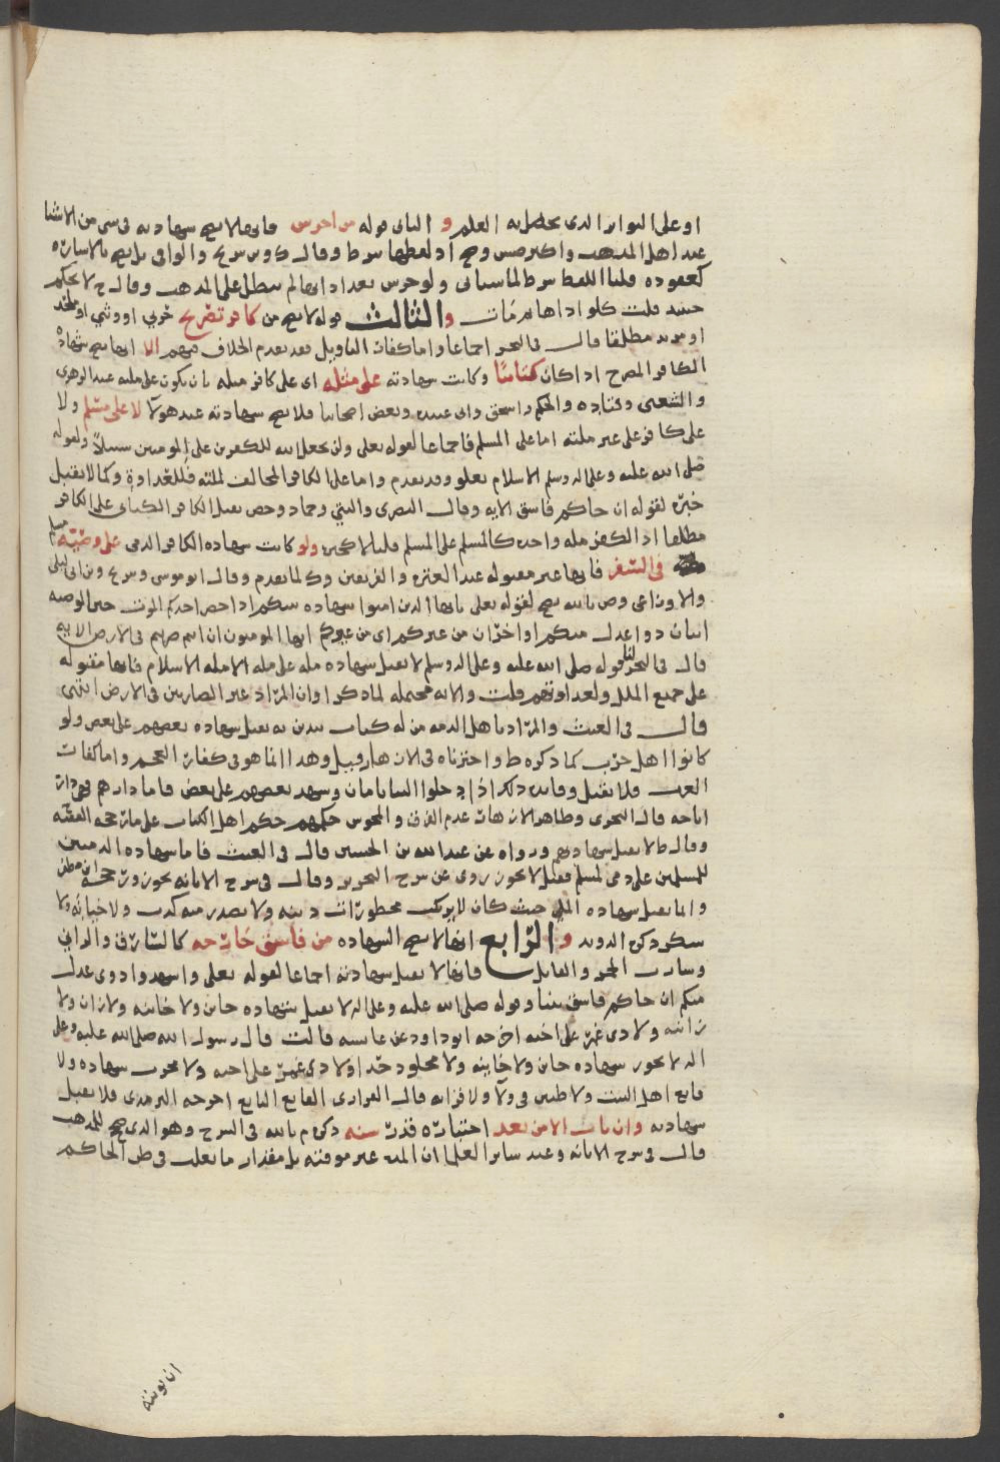 او على التواتر الذي يحصل به العلم و الثاني قوله من اخرس فانها لا تصح شهادته في شي من الاشيا
عند اهل المذهب واكثر وص وح اذ لفظها شرط وقال ك وس وش ح والوافي بل تصح بالاشارة
كعقوده قلنا اللفظ شرط لما سياتي ولو خرس بعد ادائها لم تبطل على المذهب وقال ح لا يحكم
حينئذ قلت كلو اداها ثم مات والثالث قوله لا تصح من كافر تصريح حربي او وثني او ملحد
او مرتد مطلقا قال في البحر اجماعا واما كفار التاويل فقد تقدم الخلاف فيهم الا انها تصح شهادة
الكافر المصرح اذا كان كتابيا وكانت شهادته على مثله اي على كافر مثله بان يكون على ملته عند الزهري
والشعبي وقتادة والحكم واسحق وابي عبيد وبعض اصحابنا فلا تصح شهادته عند هولا لا على مسلم ولا
على كافر على غير ملته اما على المسلم فاجماعا لقوله تعلى ولن يجعل الله للكفرين على المومنين سبيلا ولقوله
صلى الله عليه وعلى اله وسلم الاسلام يعلو وقد تقدم واما على الكافر المخالف لملته فللعداوة وكما لا تقبل
خبره لقوله ان جاكم فاسق الايه وقال البصري والبتي وحماد وحص تقبل الكافر الكتابي على الكافر
مطلقا اذ الكفر مله واحدة كالمسلم على المسلم قلنا لا ولو كانت شهادة الكافر الذمي على وصية مسلم
في السفر فانها غير مقبوله عند العترة والفريقين وك لما تقدم وقال ابو موسى وشريح وابن ابي ليلى
والاوزاعي وص بالله تصح لقوله تعلى يايها الذين امنوا شهادة بينكم اذا حضر احدكم الموت حين الوصيه
اثنان ذوا عدل منكم او اخران من غيركم اي من غيركم ايها المومنون ان انتم ضربتم في الارض الايه
قال في البحر لنا قوله صلى الله عليه وعلى اله وسلم لا تقبل شهادة مله على مله الا مله الاسلام فانها مقبوله
على جميع الملل ولعداوتهم قلت والايه محتمله لما ذكر او ان المراد غير الضاربين في الارض انتهى
قال في الغيث والمراد باهل الذمه من له كتاب يتدين به تقبل شهادة بعضهم على بعض ولو
كانوا اهل حرب كما ذكره ط واحترزناه في الازهار وقيل وهذا انما هو في كفار العجم واما كفار
العرب فلا تقبل وفايدة ذلك اذا دخلوا الينا بامان وشهد بعضهم على بعض فاما دارهم فهي دار
اباحه قال النجري وظاهر الازهار عدم الفرق والمجوس حكمهم حكم اهل الكتاب على ما رجحه الفقيه
وقال ط لا تقبل شهادتهم ورواه عن عبدالله بن الحسين قال في الغيث فاما شهادة الذميين
للمسلمين على ذمي لمسلم فقيل لا تجوز روي عن شرح التحرير وقال في شرح الابانه تجوز ورجحه
وانما تقبل شهادة الملي حيث كان لا يرتكب محظورات دينه ولا يصدر منه كذب ولا خيانه ولا
سكر ذكره الدواري والرابع انها لا تصح الشهاده من فاسق جارحه كالسارق والزاني
وشارب الخمر والقاتل فانها لا تقبل شهادته اجماعا لقوله تعلى واشهدوا ذوي عدل
منكم ان جاكم فاسق بنبا وقوله صلى الله عليه وعلى اله لا تقبل شهادة خاين ولا خاينه ولا زان ولا
زانيه ولا ذي غمر على اخيه اخرجه ابو داود عن عايشه قالت قال رسول الله صلى الله عليه وعلى
اله لا تجوز شهادة خاين ولا خاينه ولا مجلود حدا ولا ذي غمر على اخيه ولا مجرب شهاده ولا
قانع اهل البيت ولا ظنين في ولا ولا قرابه قال الفزاري القانع التابع اخرجه الترمذي فلا تقبل
شهادته وان تاب الا من بعد اختباره قدر سنه ذكره م بالله في الشرح وهو الذي صحح للمذهب
قال في شرح الابانه وعند ساير العلما ان المدة غير موقته بل مقدار ما يغلب في ظن الحاكم
ان توبته